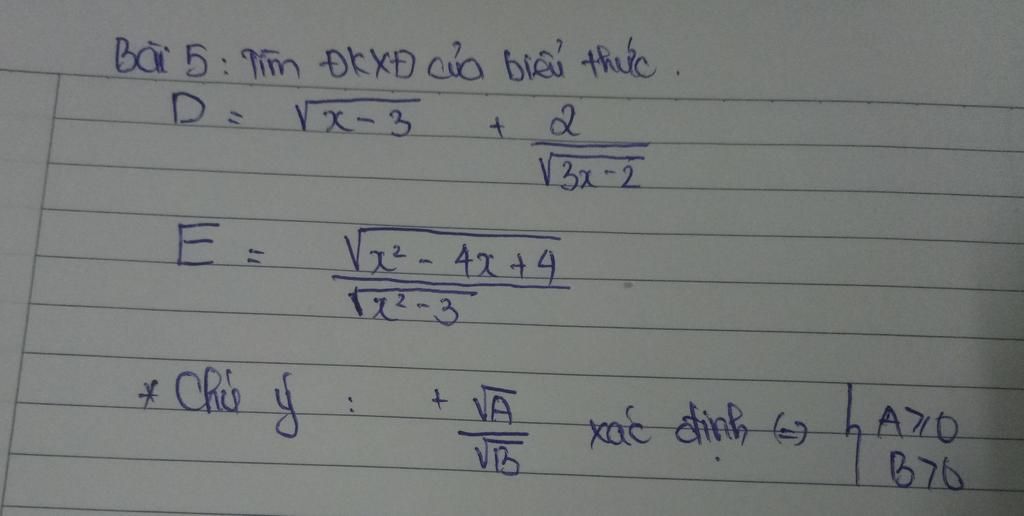 Bài 5: Tìm ĐKXĐ của biểu thức.
D = √(x-3) + 2/√(3x-2)
E = √(x² - 4x + 4)/√(x² - 3)
* Chú ý : + √A/√B xác định ⇔ { A≥0
B>0